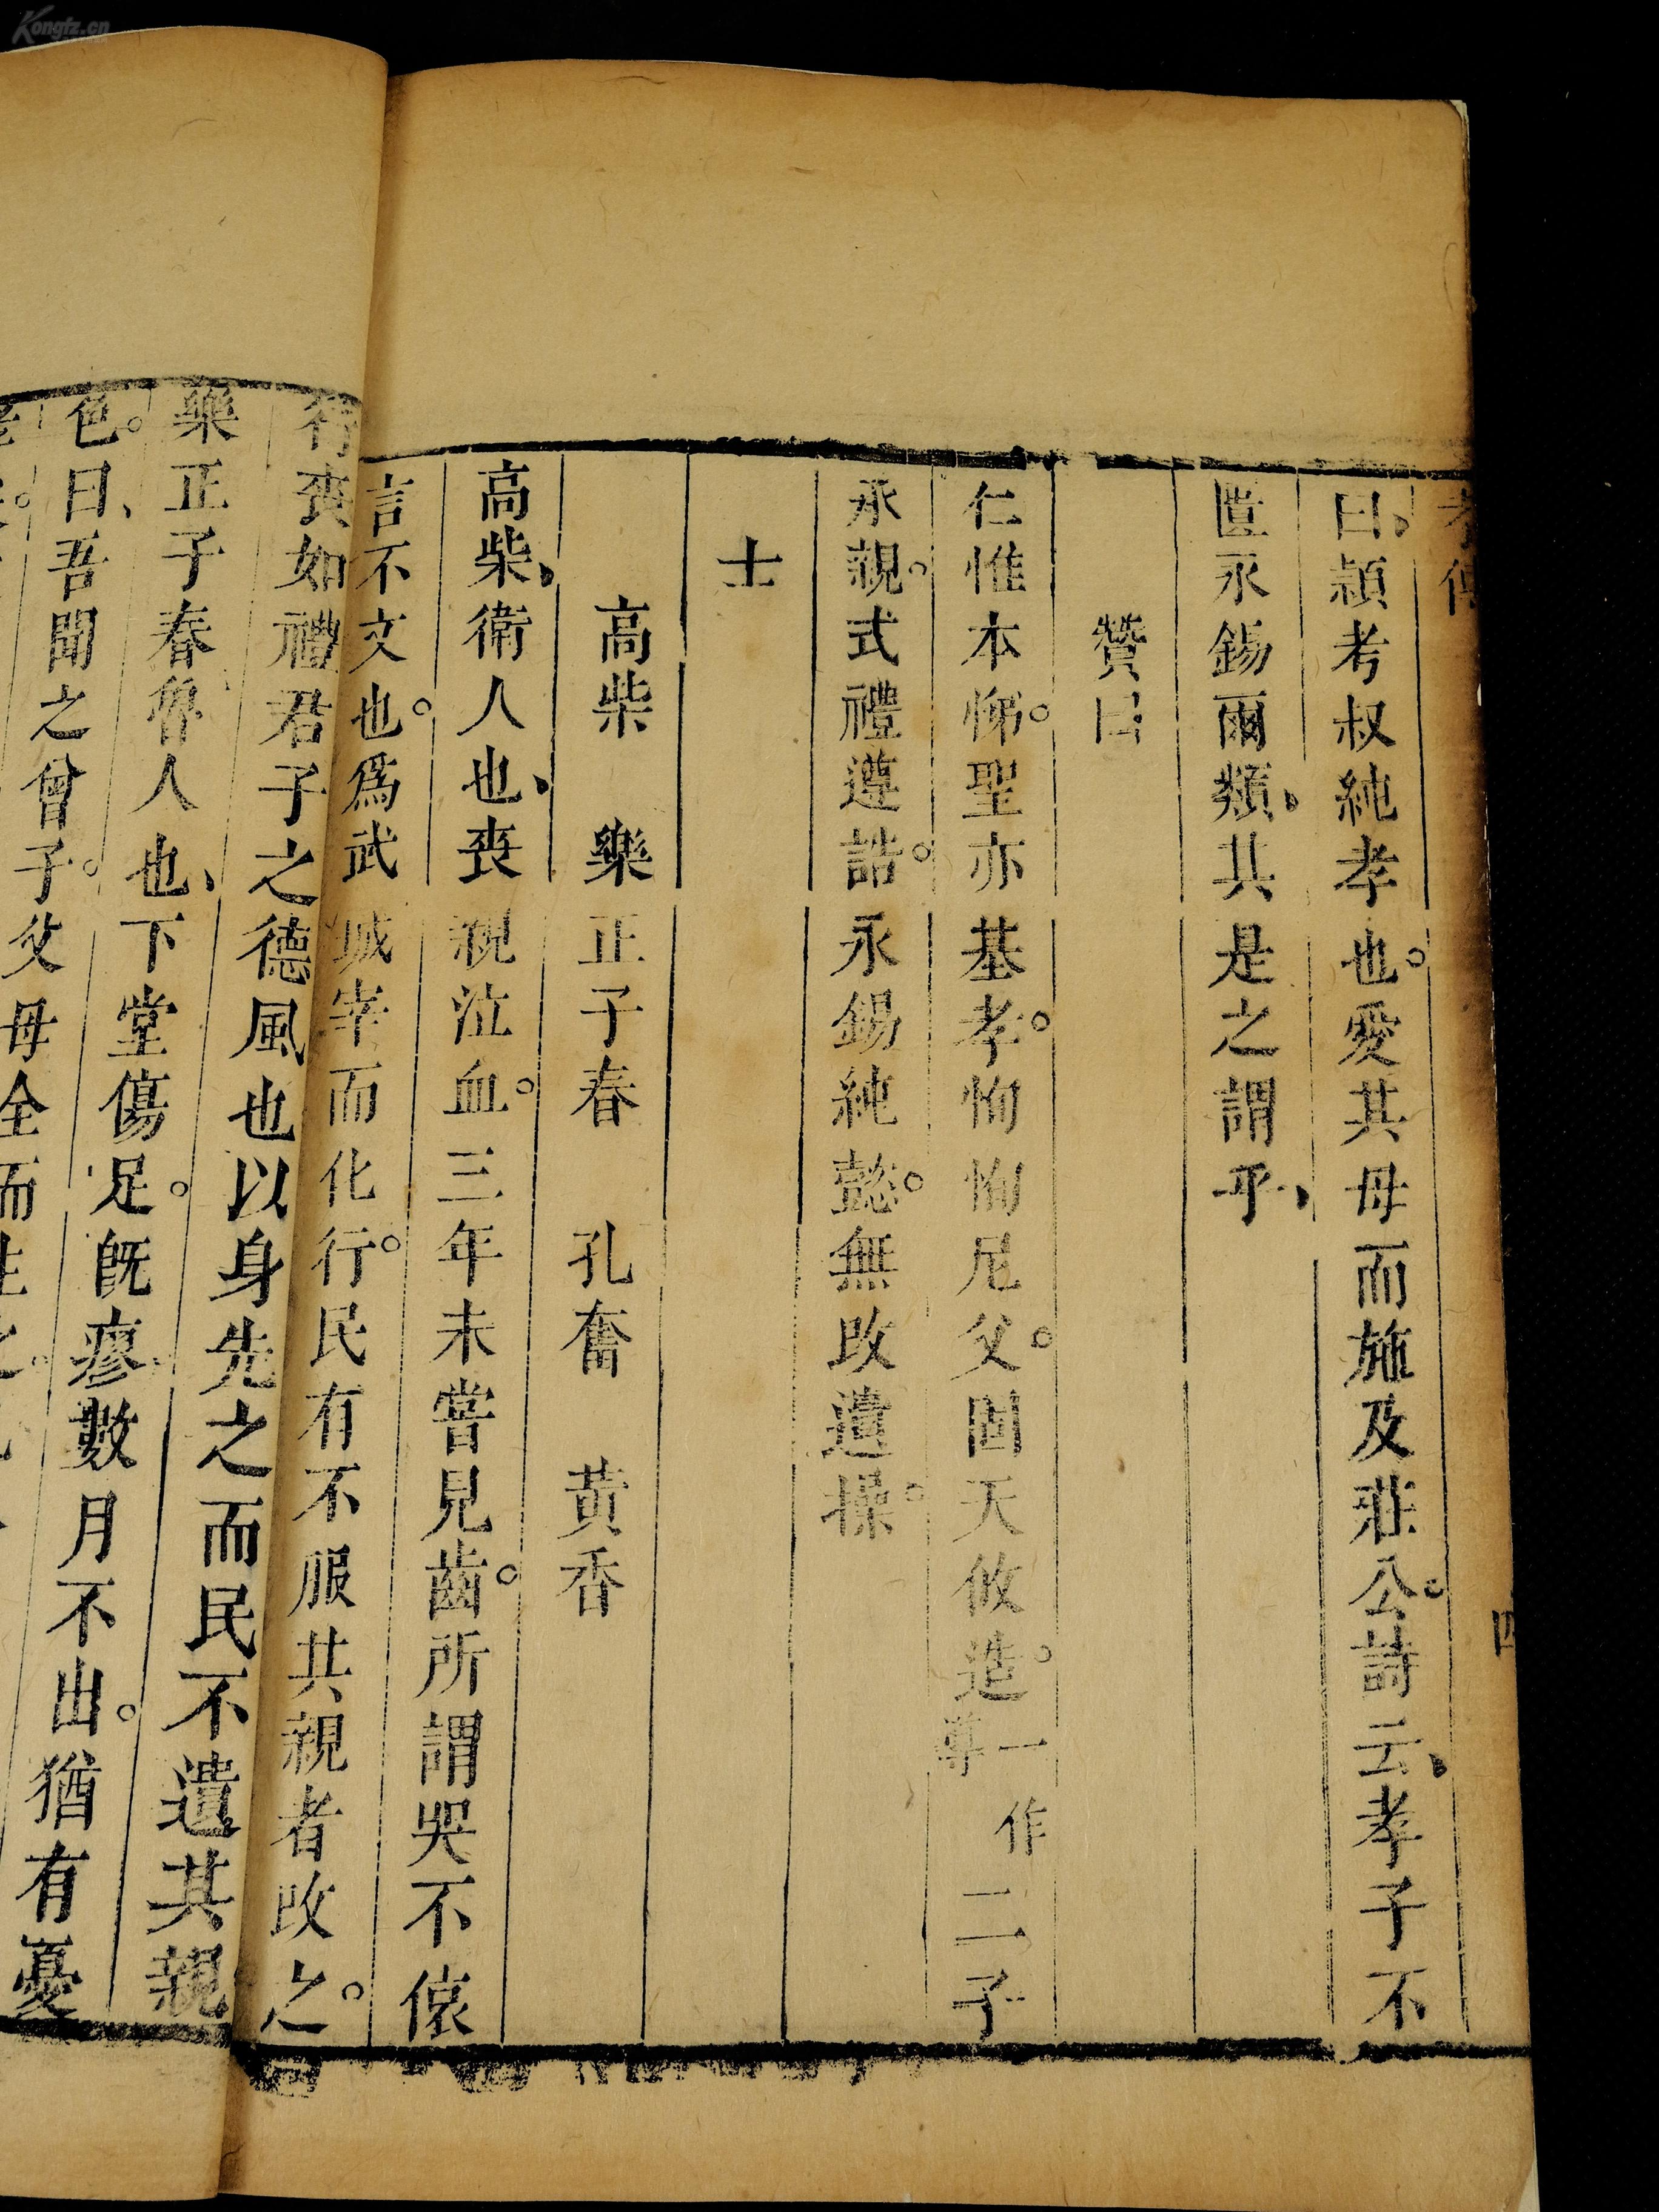 Kongfz.cn
孝傳
四
曰、潁考叔純孝也。愛其母而施及莊公。詩云、孝子不
匱永錫爾類、其是之謂乎、
贊曰
仁惟本悌。聖亦基孝。恂恂尼父。固天攸造。一作尊二子
承親。式禮遵誥。永錫純懿。無改遺操。
士
高柴 樂正子春 孔奮 黃香
高柴、衛人也、喪親泣血。三年未嘗見齒。所謂哭不偯
言不文也。為武城宰而化行。民有不服其親者改之。
行喪如禮君子之德風也以身先之而民不遺其親
樂正子春魯人也、下堂傷足。旣瘳數月不出。猶有憂
色。曰、吾聞之曾子。父母全而生之。